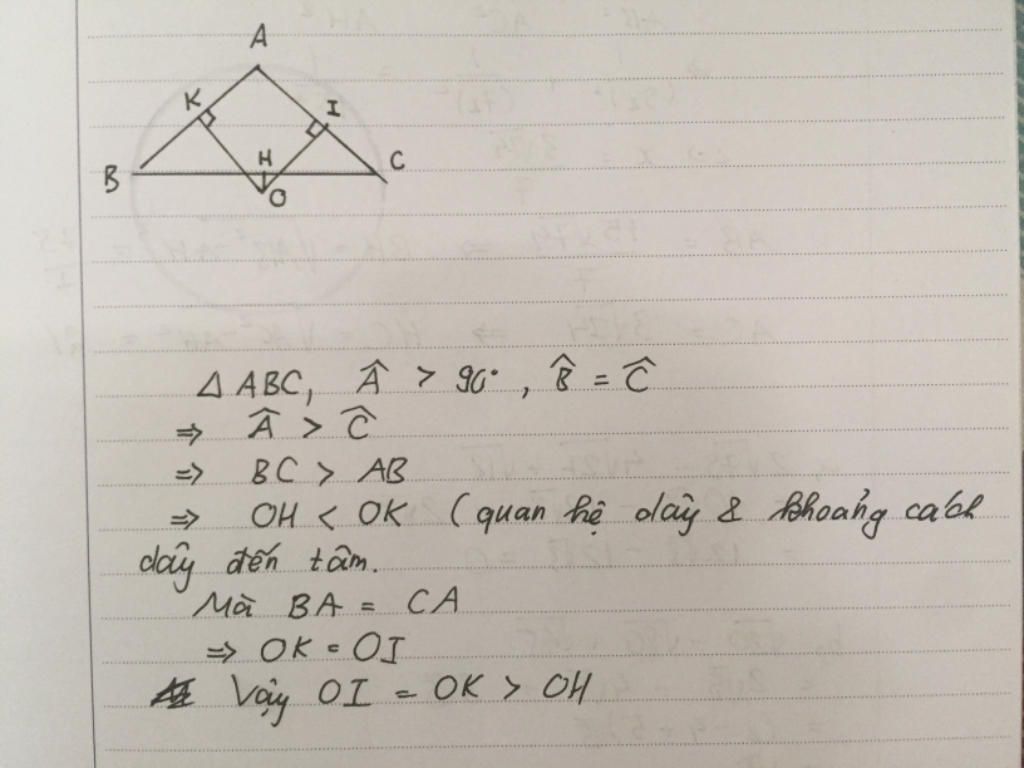 A
K
I
H
B
C
O
△ ABC, Â > 90°, B̂ = Ĉ
⇒ Â > Ĉ
⇒ BC > AB
⇒ OH < OK (quan hệ dây & khoảng cách
dây đến tâm.
Mà BA = CA
⇒ OK = OI
Vậy OI = OK > OH